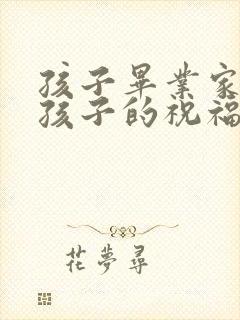 孩子畢業家
孩子的祝福
花夢尋